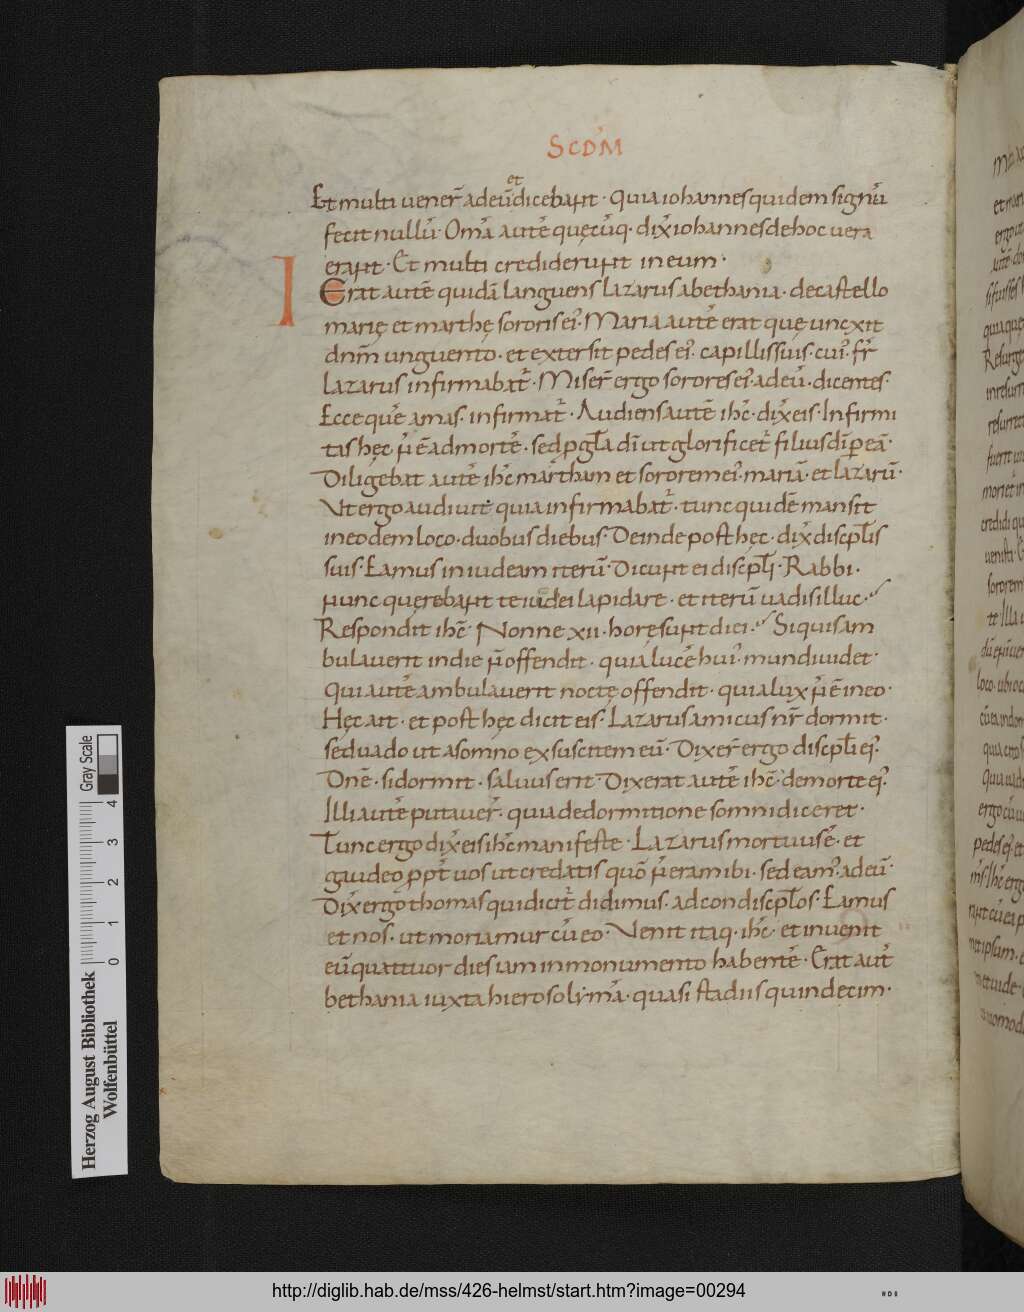 SCDM̄
et
Et multi uener̄ adeū dicebant · Quia iohannes quidem signū
fecit nullū · Om̄a aut̄ quęcūq · dix̄ iohannes de hoc uera
erant · Et multi crediderunt in eum ·
I Erat autē quidā languens lazarus abethania · decastello
marię et marthę sororis ei᾽ · Maria autē erat quę unexit
dnm̄ unguento · et extersit pedes ei᾽ · capillis suis · cui᾽ · fr̄
lazarus infirmabat᾽ · Miser̄ ergo sorores ei᾽ adeū · dicentes ·
Ecce quē amas · infirmat᾽ · Audiens autē ihc̄ · dix̄ eis · Infirmi
tas hęc n̄ ē admortē · sed p gl̄a dī ut glorificet᾽ filius dī p eā ·
Diligebat autē ihc̄ martham et sororem ei᾽ mariā · et lazarū ·
Vt ergo audiuit quia infirmabat᾽ · tunc quidē mansit
ineodem loco · duobus diebus · Deinde post hęc · dix̄ discpl̄is
suis · Eamus in iudeam iterū · Dicunt ei discpl̄i · Rabbi ·
nunc querebant te iudei lapidare · et iterū uadis illuc ·
Respondit ihc̄ · Nonne xii · horę sunt diei · Si quis am
bulauerit in die n̄ offendit · quia lucē hui᾽ · mundi uidet ·
Qui autē ambulauerit nocte offendit · quia lux n̄ ē ineo ·
Hęc ait · et post hęc dicit eis · Lazarus amicus nr̄ dormit ·
sed uado ut asomno exsuscitem eū · Dixer̄ ergo discpl̄i ei᾽ ·
Dn̄e · si dormit · saluus erit · Dixerat autē ihc̄ · demorte ei᾽ ·
Illi autē putauer̄ · quia dedormitione somni diceret ·
Tunc ergo dix̄ eis ihc̄ manifeste · Lazarus mortuus ē · et
gaudeo ppt̄ uos ut credatis quō n̄ eram ibi · sed eam᾽ adeū ·
Dix̄ ergo thomas qui dicit᾽ didimus · ad condiscpl̄os · Eamus
et nos · ut moriamur cū eo · Venit itaq · ihc̄ · et inuenit
eū quattuor dies iam in monumento habentē · Erat aut̄
bethania iuxta hierosolymā · quasi stadiis quindecim ·
Gray Scale
0 1 2 3 4
Herzog August Bibliothek
Wolfenbüttel
http://diglib.hab.de/mss/426-helmst/start.htm?image=00294